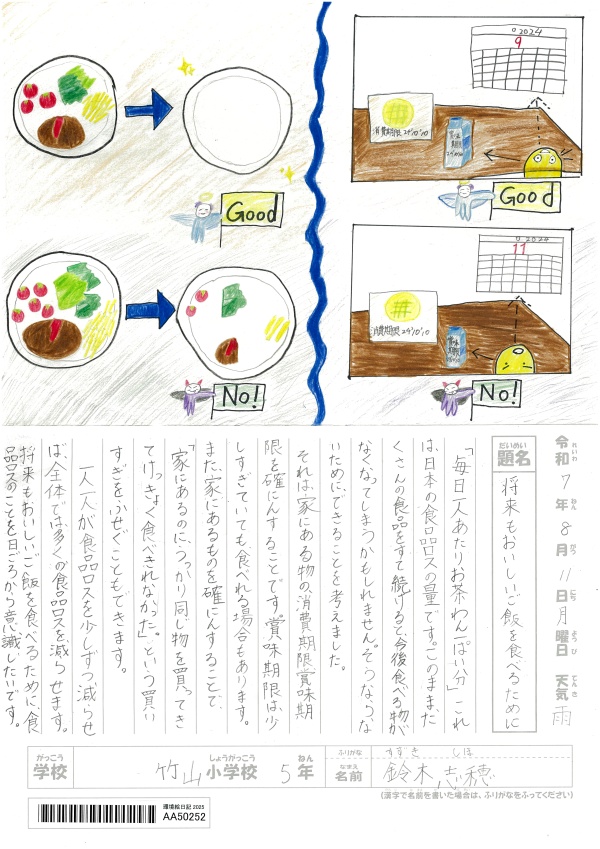 0 2024
9
消費期限 24'10'10
賞味期限 24'10'10
Good
Good
0 2024
11
消費期限 24'10'10
賞味期限
No!
No!
令和7年8月11日月曜日 天気 雨
れいわ ねん がつ にち ようび てんき
だいめい
題名
将来もおいしいご飯を食べるために
「毎日一人あたりお茶わん一ぱい分」これ
は、日本の食品ロスの量です。このまま、た
くさんの食品をすて続けると、今後食べる物が
なくなってしまうかもしれません。そうならな
いためにできることを考えました。
それは、家にある物の消費期限、賞味期
限を確にんすることです。賞味期限は、少
しすぎていても食べれる場合もあります。
また、家にあるものを確にんすることで、
「家にあるのに、うっかり同じ物を買ってき
てけっきょく食べきれなかった」。という買い
すぎをふせぐこともできます。
一人一人が食品ロスを少しずつ減らせ
ば、全体では多くの食品ロスを減らせます。
将来もおいしいご飯を食べるために、食
品ロスのことを日ごろから意識したいです。
がっこう
学校
竹山
しょうがっこう
小学校
5
ねん
年
ふりがな
すずき しほ
なまえ
名前
鈴木 志穂
(漢字で名前を書いた場合は、ふりがなをふってください)
環境絵日記 2025
AA50252